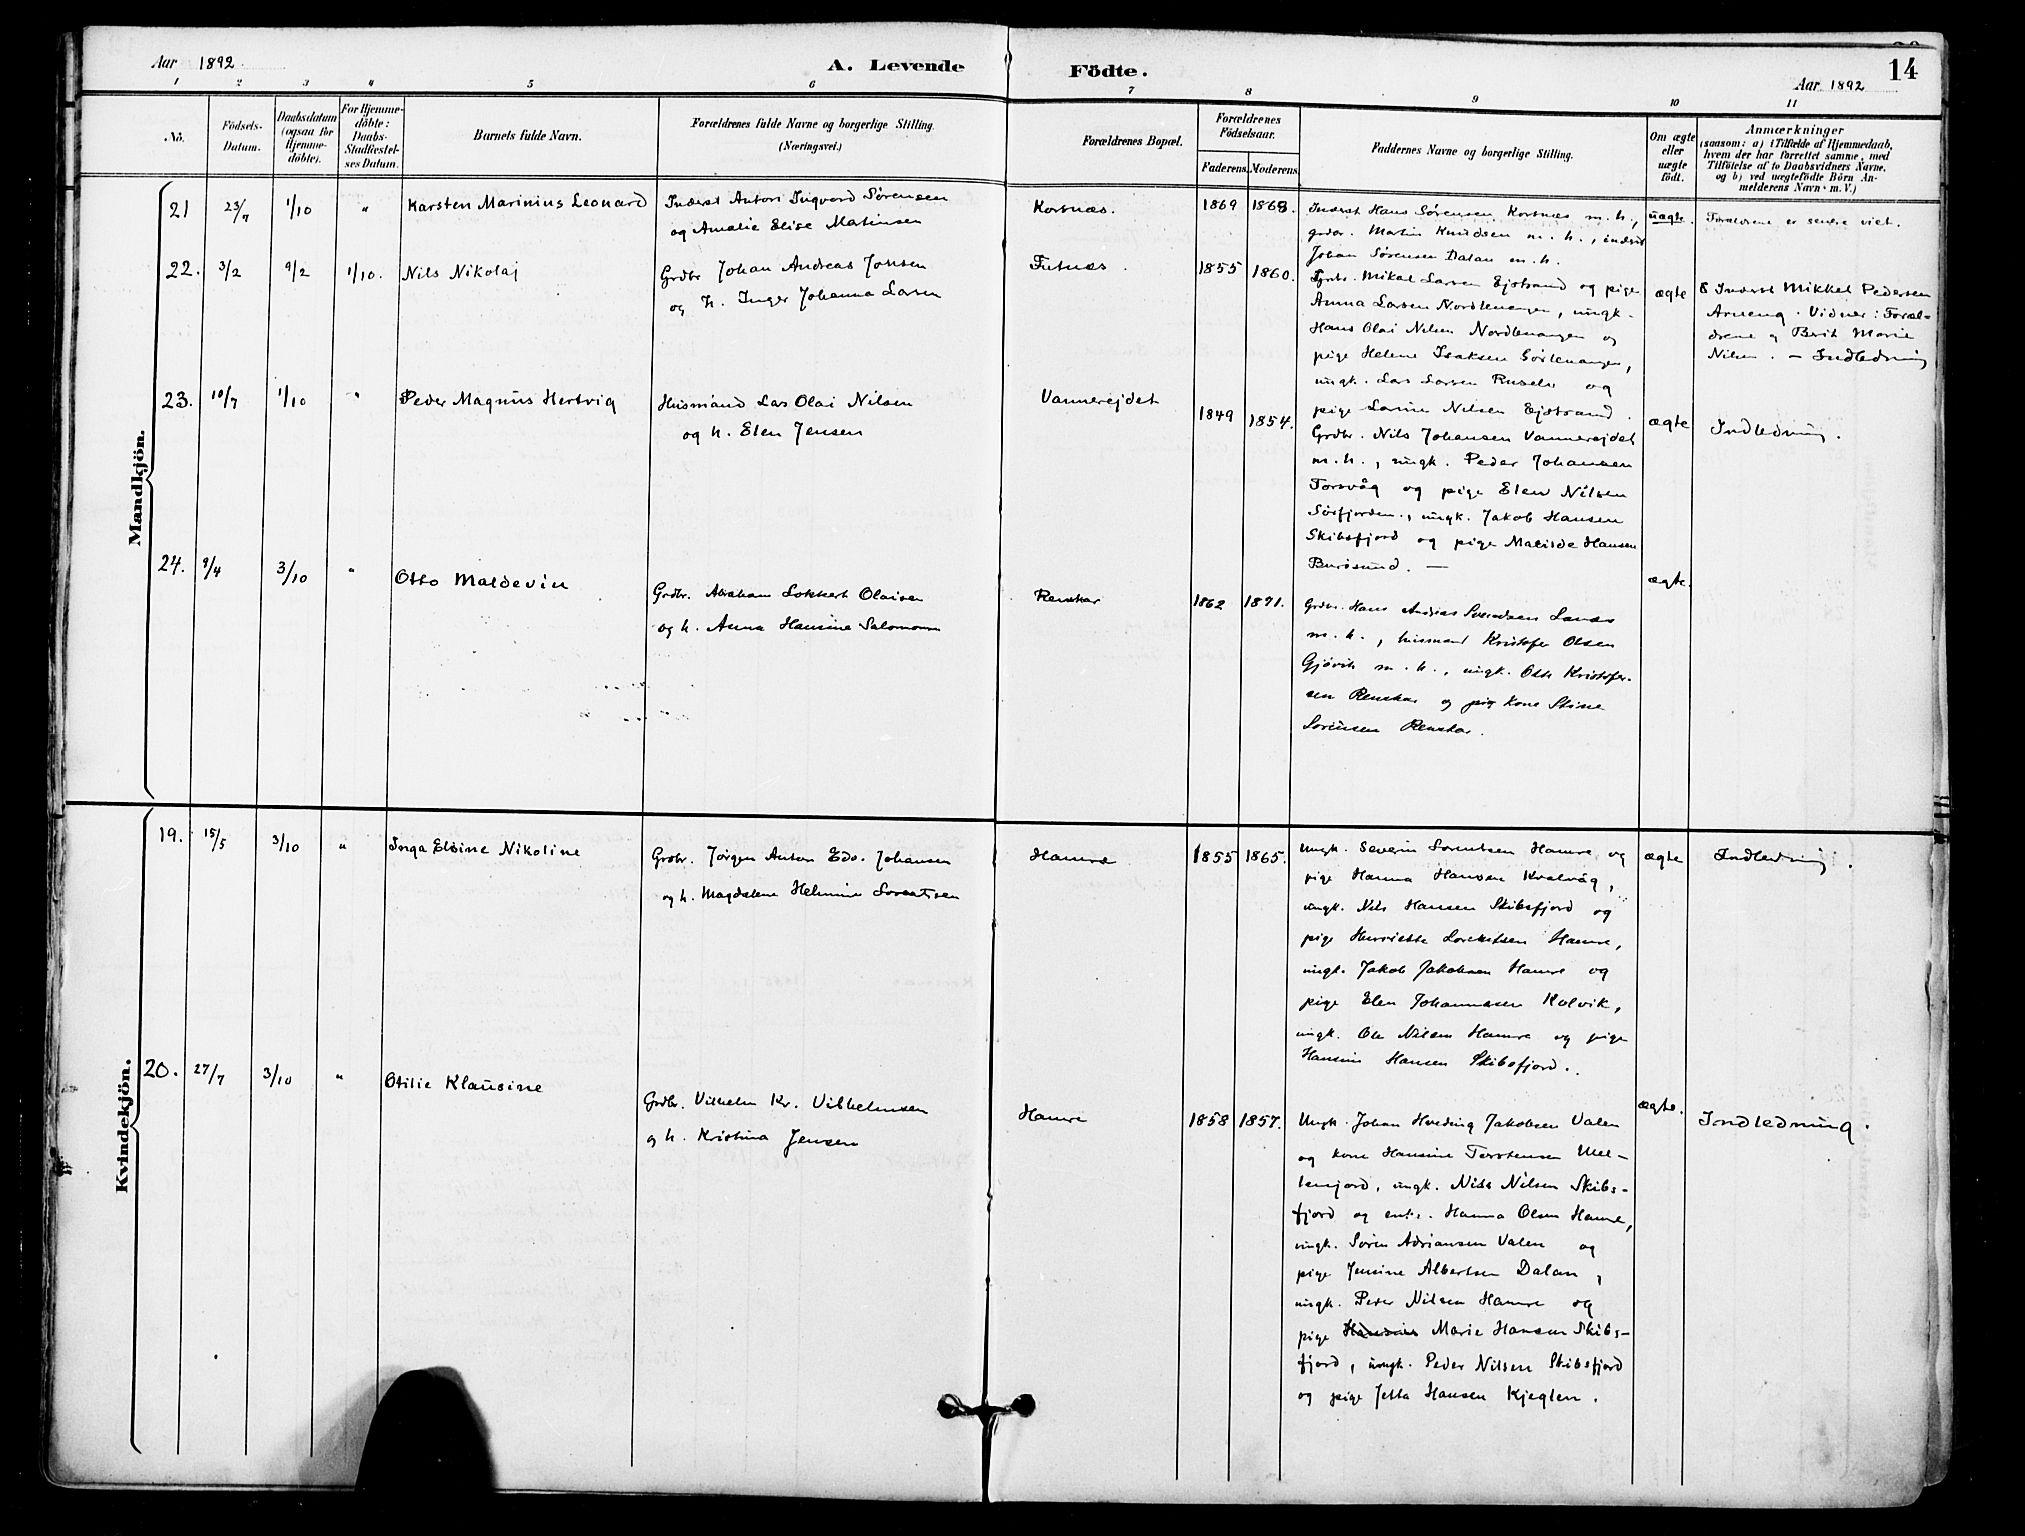 Aar 1892
A. Levende Födte.
14
Aar 1892
1 2 3 4 5 6 7 8 9 10 11
No. Födsels-Datum. Daabsdatum (ogsaa for Hjemme-döbte). For Hjemme-döbte: Daabs-Stadfæstel-ses Datum. Barnets fulde Navn. Forældrenes fulde Navne og borgerlige Stilling. (Næringsvei.)
Forældrenes Bopæl. Forældrenes Födselsaar. Faderens. Moderens. Faddernes Navne og borgerlige Stilling. Om ægte eller uægte födt.
Anmærkninger
(saasom: a) i Tilfælde af Hjemmedaab,
hvem der har forrettet samme, med
Tilföielse af to Daabsvidners Navne,
og b) ved uægtefödte Börn An-
melderens Navn m. V.)
Mandkjön.
21 23/7 1/10 " Karsten Marinius Leonard
Inderst Anton Ingvard Sørensen
og Amalie Elise Matinsen
Kortnæs. 1869 1868.
Inderst Hans Sørensen Kortnæs m. h.,
grdbr. Martin Knudsen m. h., inderst
Johan Sørensen Dalan m. h.
uægte.
Forældrene er senere viet.
22. 3/2 9/2 1/10. Nils Nikolaj
Grdbr Johan Andreas
og h. Inger Johanna Larsen
1855 1860.
Grdbr. Mikal Larsen Ejdstrand og pige
Anna Larsen Nordlenangen, ungk.
Hans Olai Nilsen Nordlenangen og
pige Helene Isaksen Sørlenangen,
ungk. Lars Larsen og
pige Larine Nilsen Ejdstrand.
ægte
Inderst Mikkel Pedersen
Vidner: Foræl-
drene og Berit Marie
Nilsen. — Indledning
23. 10/7 1/10 " Peder Magnus Hertvig
Husmand Lars Olai Nilsen
og h. Elen Jensen
Vannerejdet 1849 1854.
Grdbr. Nils Johansen Vannerejdet
m. h., ungk. Peder Johansen
Torsvåg og pige Elen Nilsen
Sörfjorden., ungk. Jakob Hansen
Skibsfjord og pige Matilde Hansen
Burösund. —
ægte
Indledning.
24. 9/4 3/10 " Otto Maldevin
Grdbr. Abraham Lokkert Olaisen
og h. Anna Hansine Salomonsen
Renskar 1862 1871.
Grdbr. Hans Andreas Svendsen
m. h., husmand Kristofer Olsen
Gjøvik m. h., ungk. Otto Kristofer-
sen Renskar og pig kone Stine
Sørensen Renskar.
ægte.
Kvindekjön.
19. 15/5 3/10 " Inga Elsine Nikoline
Grdbr. Jørgen Anton Edv. Johansen
og h. Magdalene Helmine Lorentsen
Hamre 1855 1865.
Ungk. Severin Lorentsen Hamre og
pige Hanna Hansen Kvalvåg,
ungk. Nils Hansen Skibsfjord og
pige Henriette Lorentsen Hamre,
ungk. Jakob Jakobsen Hamre og
pige Elen Johannesen Kalvik,
ungk. Ole Nilsen Hamre og pige
Hansine Hansen Skibsfjord.
ægte
Indledning.
20. 27/7 3/10 " Otilie Klausine
Grdbr. Vilhelm Kr. Vilhelmsen
og h. Kristina Jensen
Hamre 1858 1857.
Ungk. Johan Hveding Jakobsen Valen
og kone Hansine Torstensen Mel-
lemjord, ungk. Nils Nilsen Skibs-
fjord og enke. Hanna Olsen Hamre,
ungk. Sören Adriansen Valen og
pige Jensine Albertsen Dalan,
ungk. Peder Nilsen Hamre og
pige Hansine Marie Hansen Skibs-
fjord, ungk. Peder Nilsen Skibsfjord
og pige Jetta Hansen Kjeglen.
ægte.
Indledning.